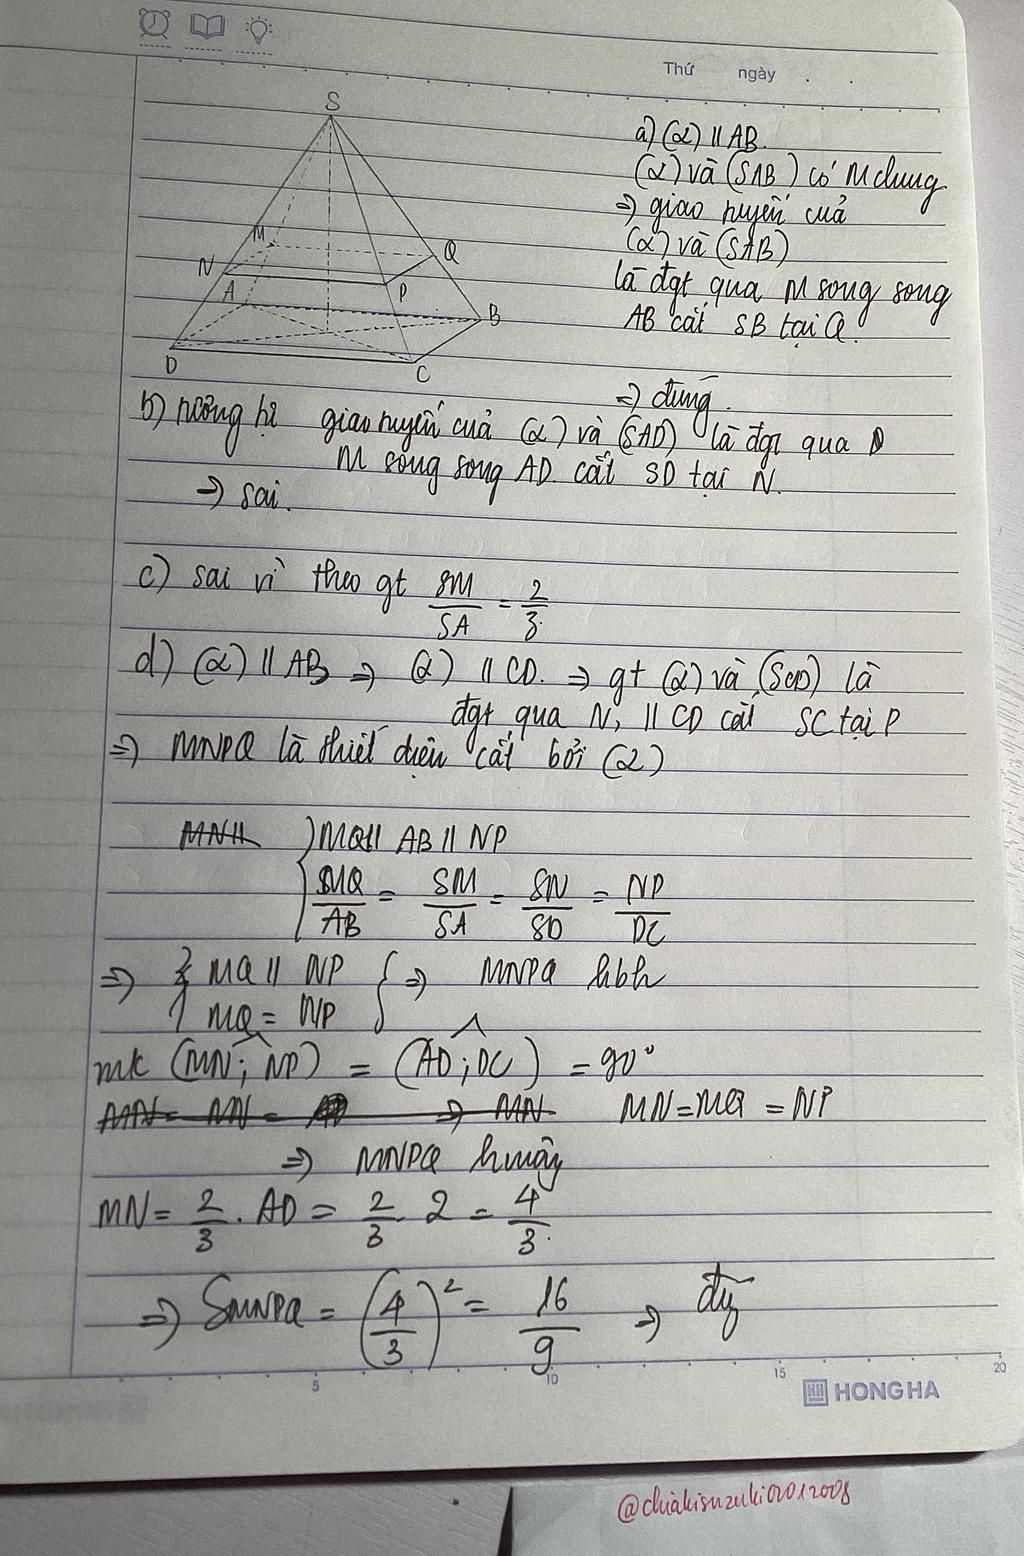 Thứ ngày . .
S
M
N
Q
A
P
B
D
C
a) (α) // AB.
(α) và (SAB) có M chung
⇒ giao tuyến của
(α) và (SAB)
là đgt qua M song song
AB cắt SB tại Q.
⇒ đúng.
b) tương tự giao tuyến của (α) và (SAD) là đgt qua
M song song AD cắt SD tại N.
⇒ sai.
c) sai vì theo gt SM/SA = 2/3.
d) (α) // AB ⇒ (α) // CD. ⇒ gt (α) và (SCD) là
đgt qua N, // CD cắt SC tại P
⇒ MNPQ là thiết diện cắt bởi (α)
MN //
{ MQ // AB // NP
MQ/AB = SM/SA = SN/SD = NP/DC
⇒ { MQ // NP
MQ = NP } ⇒ MNPQ hbh
mk (MN; NP) = (AD; DC) = 90°
MN = MQ = NP
⇒ MNPQ hvuông
MN = 2/3 . AD = 2/3 . 2 = 4/3.
⇒ SMNPQ = (4/3)² = 16/9 ⇒ đúg
5 10 15 20
HONG HA
@chiakisuzuki02012008